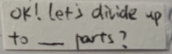 OK! Let's divide up
to __ parts?